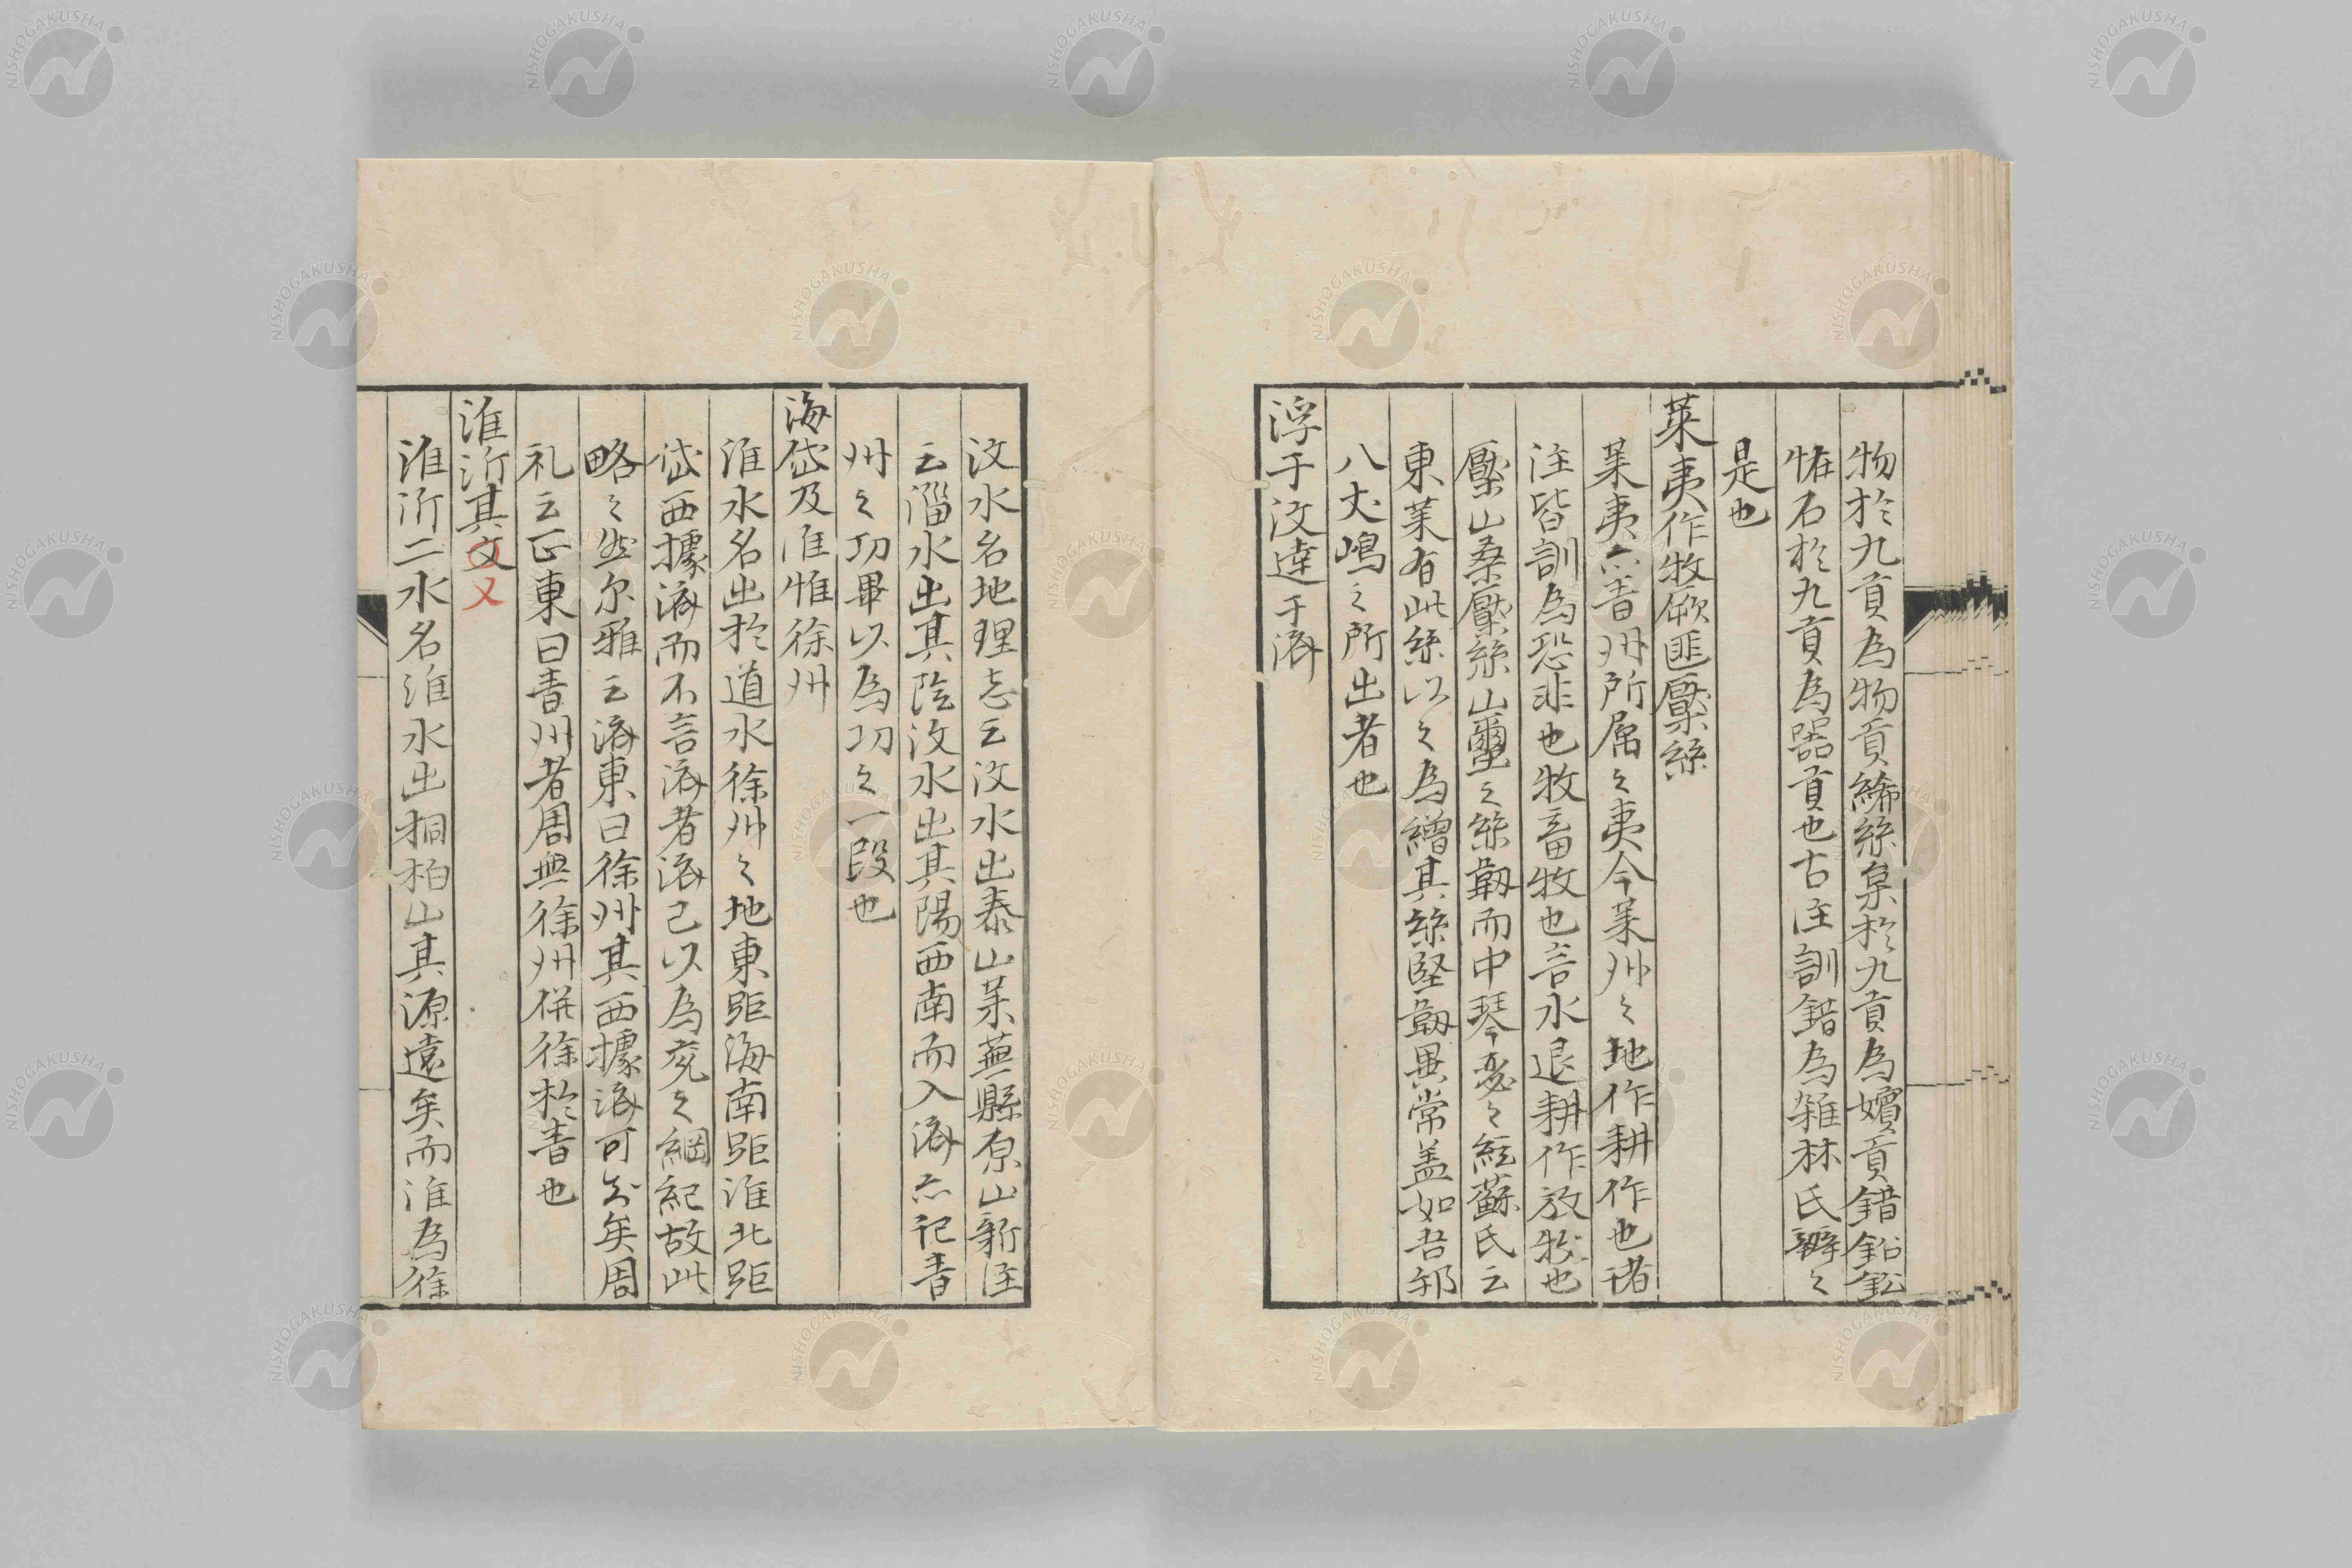 物於九貢為物貢絺絲枲於九貢為嬪貢錯鉛鈆
怪石於九貢為器貢也古注訓錯為雜林氏辨之
是也
萊夷作牧厥匪檿絲
萊夷亦青州所属之夷今萊州之地作耕作也諸
注皆訓為恐非也牧畜牧也言水退耕作放牧也
檿山桑檿絲山蠒之絲韌而中琴瑟之絃蘇氏云
東萊有此絲以之為繒其絲堅韌異常盖如吾邦
八丈嶋之所出者也
浮于汶達于濟
汶水名地理志云汶水出泰山萊蕪縣原山新注
云淄水出其陰汶水出其陽西南而入濟亦記青
州之功畢以為功之一段也
海岱及淮惟徐州
淮水名出於道水徐州之地東距海南距淮北距
岱西據濟而不言濟者濟已以為兗之綱紀故此
略之尔雅云濟東曰徐州其西據濟可知矣周
礼云正東曰青州者周無徐州併徐於青也
淮沂其文乂
淮沂二水名淮水出桐柏山其源遠矣而淮為徐
NISHOGAKUSHA